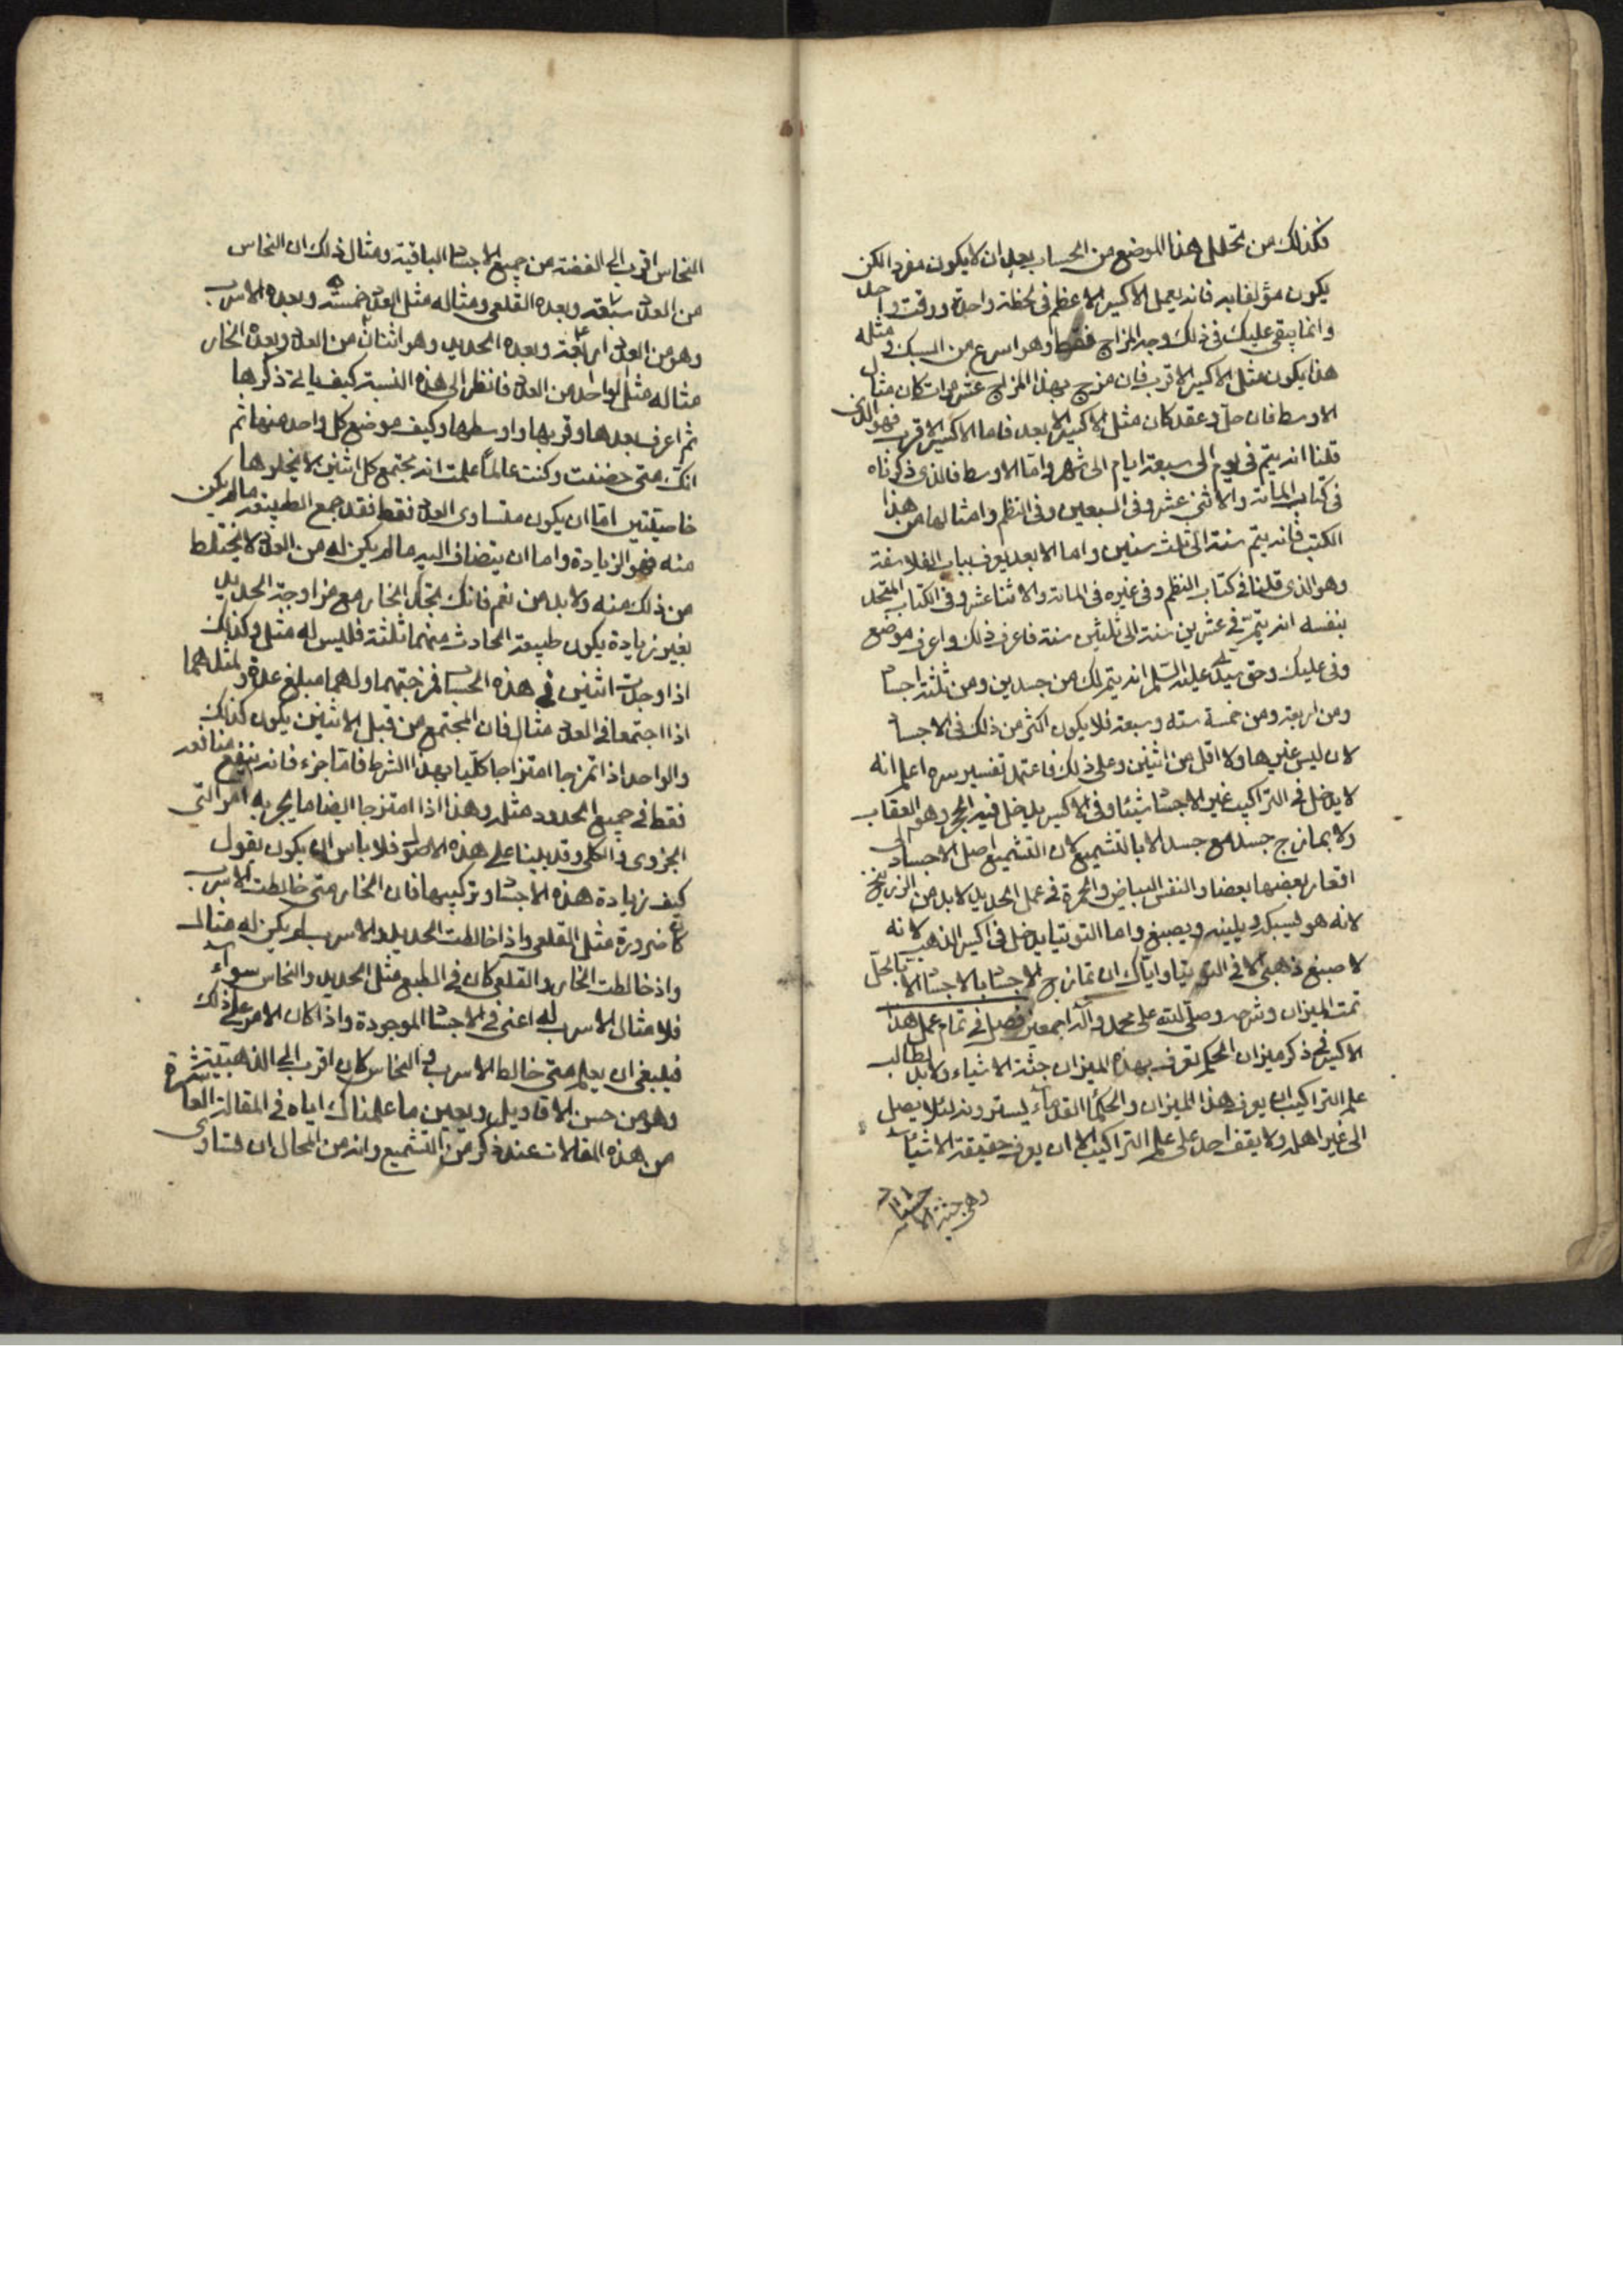 فكذلك من تحلل هذا الموضع من الحساب بعد ان لا يكون مفردا لكن
يكون مؤلفا به فانه يعمل الاكسير الاعظم في لحظة واحدة ووقت واحد
وانما يبقى عليك في ذلك وجه المزاج فقط وهو اسرع من السبك ومثله
هذا يكون مثل الاكسير الاقرب فان مزج بهذا المزاج عشر مرات كان مثال
الاوسط فان حل وعقد كان مثل الاكسير الابعد فاما الاكسير الاقرب فهو الذى
قلنا انه يتم في يوم الى سبعة ايام الى شهر واما الاوسط فالذى ذكرناه
في كتاب المائة والاثنى عشر وفي السبعين وفي النظم وامثالها من هذا
الكتب فانه يتم سنة الى ثلث سنين واما الابعد يعرف بباب الفلاسفة
وهو الذى قلنا في كتاب النظم وفي غيره في المائة والاثنا عشر وفي الكتاب المتحد
بنفسه انه يتم في عشرين سنة الى ثلثين سنة فاعرف ذلك واعرف موضع
وفى عليك وحق سيدى عليه السلم انه يتم لك من جسدين ومن ثلثة اجساد
ومن اربعة ومن خمسة سته وسبعة فلا يكون اكثر من ذلك في الاجساد
لان ليس غيرها ولا اقل من اثنين وعلى ذلك فاعتمد تفسير سره اعلم انه
لا يدخل في التراكيب غير الاجساد شيئا وفي الاكسير يدخل فيه الحجر وهو العقاب
ولا يمازج جسد مع جسد الا بالتشميع لان التشميع اصل الاجساد
بعضها بعضا والنفس البياض والحمرة في عمل الحديد لا بد من الزرنيخ
لانه هو ليسبكه ويلينه ويصبغ واما التوتيا يدخل في اكسير الذهب لانه
لا صبغ ذهبي الا في التوتيا واياك ان تمازج الاجساد بالاجساد الا بالحل
تمت الميزان وشرحه وصلى الله على محمد وآله اجمعين فصل في تمام عمل هذا
الاكسير في ذكر ميزان الحكم تعرف بهذه الميزان جثة الاشياء ولا بد لطالب
علم التراكيب ان يعرف هذا الميزان والحكما القدماء يسترونه لئلا يصل
الى غير اهله ولا يقف احد على علم التراكيب الا ان يعرف حقيقة الاشياء
وهى جثة الاجساد
النحاس اقرب الى الفضة من جميع الاجساد الباقية ومثال ذلك ان النحاس
من العدد سبعة وبعده القلعى ومثاله مثل العدد خمسة وبعده الاسرب
وهو من العدد اربعة وبعده الحديد وهو اثنان من العدد وبعده الخار
مثاله مثل الواحد من العدد فانظر الى هذه النسبة كيف ياتى ذكرها
ثم اعرف بعدها وقربها واوسطها وكيف موضع كل واحد منها ثم
انك متى حضنت وكنت عالماً علمت انه يجتمع كل اثنين لا يخلوها
خاصيتين اما ان يكون متساوى العدد فقط فقد جمع الطبيعة ما لم يكن
منه فهو الزيادة واما ان يتضاف اليه ما لم يكن له من العدد لا يختلط
من ذلك منه ولا بد من نعم فانك تجد الخار مع مزاوجة الحديد
بغير زيادة يكون طبيعة الحادث منهما ثلثة فليس له مثل وكذلك
اذا وجدت اثنين في هذه الجسد فمزجتهما ولهما مبلغ عدة ولمثلهما
اذا اجتمعا في العدد مثال فان المجتمع من قبل الاثنين يكون كذلك
والواحد اذا تمزجا امتزاجا كليا وبهذا الشرط فاما جزء فانه ينفع منافعه
فقط في جميع الحدود مثله وهذا اذا امتزجا ايضا ما يجر به امر التى
الجزوى والكلى وقد بينا على هذه الاصول فلا باس ان يكون نقول
كيف زيادة هذه الاجساد وتركيبها فان الخار متى خالطت الاسرب
كان ضرورة مثل القلعى واذا خالطت الحديد والاسرب لم يكن له مثال
واذ خالطت الخار والقلعى كان في الطبع مثل الحديد والنحاس سواء
فلا مثال الاسرب له اعنى في الاجساد الموجودة واذا كان الامر على ذلك
فينبغى ان يعلم متى خالط الاسرب والنحاس كان اقرب الى الذهبية
وهو من حسن الاقاويل وبعين ما علمناك اياه في المقالة العاشرة
من هذه المقالات عند ذكر من التشميع وانه من المحال ان يتساوى